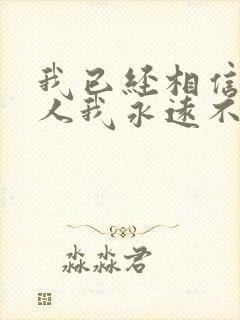 我已经相信
人我永远不
淼淼君